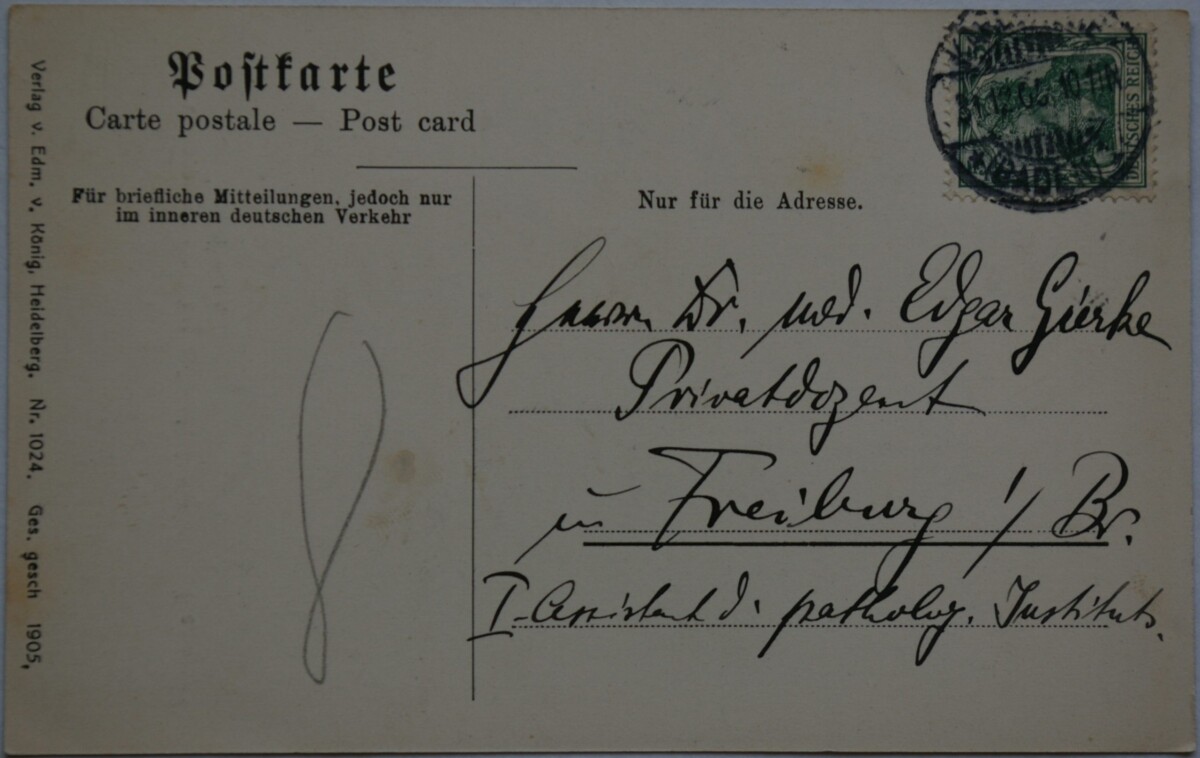 Postkarte
Carte postale — Post card
Für briefliche Mitteilungen, jedoch nur
im inneren deutschen Verkehr
Nur für die Adresse.
DEUTSCHES REICH
(BADEN)
Herrn Dr. med. Edgar Gierke
Privatdozent
in Freiburg i/Br.
I. Assistent d. patholog. Instituts.
Verlag v. Edm. v. König, Heidelberg. Nr. 1024. Ges. gesch 1905,